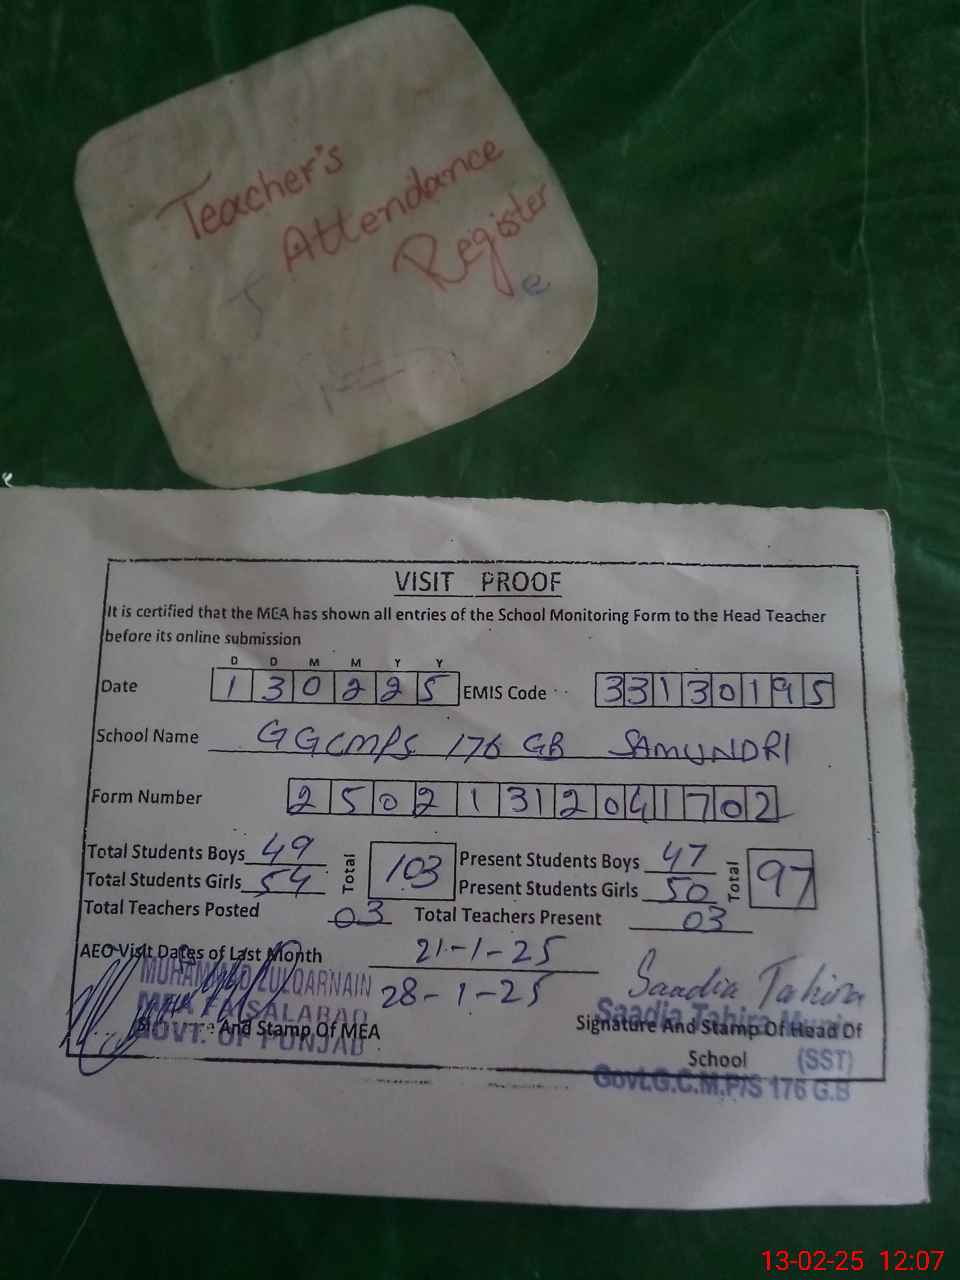 Teacher's
Attendance
Register
VISIT PROOF
It is certified that the MEA has shown all entries of the School Monitoring Form to the Head Teacher
before its online submission
D D M M Y Y
Date 130225 EMIS Code 33130195
School Name GGCMPS 176 GB SAMUNDRI
Form Number 25021312041702
Total Students Boys 49 Total 103 Present Students Boys 47 Total 97
Total Students Girls 54 Present Students Girls 50
Total Teachers Posted 03 Total Teachers Present 03
AEO Visit Dates of Last Month 21-1-25
28-1-25
MUHAMMAD ZULQARNAIN
MEA FAISALABAD
GOVT. OF PUNJAB
And Stamp Of MEA
Saadia Tahira
Saadia Tahira
Signature And Stamp Of Head Of
School
(SST)
Govt.G.C.M.P/S 176 G.B
13-02-25 12:07